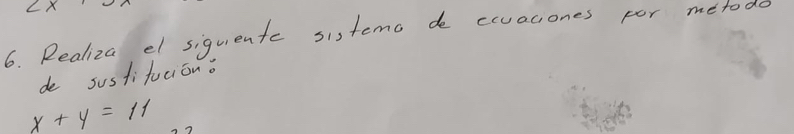 6. Realiza el siguiente sistema de ecuaciones por metodo
de sustitución:
x + y = 11